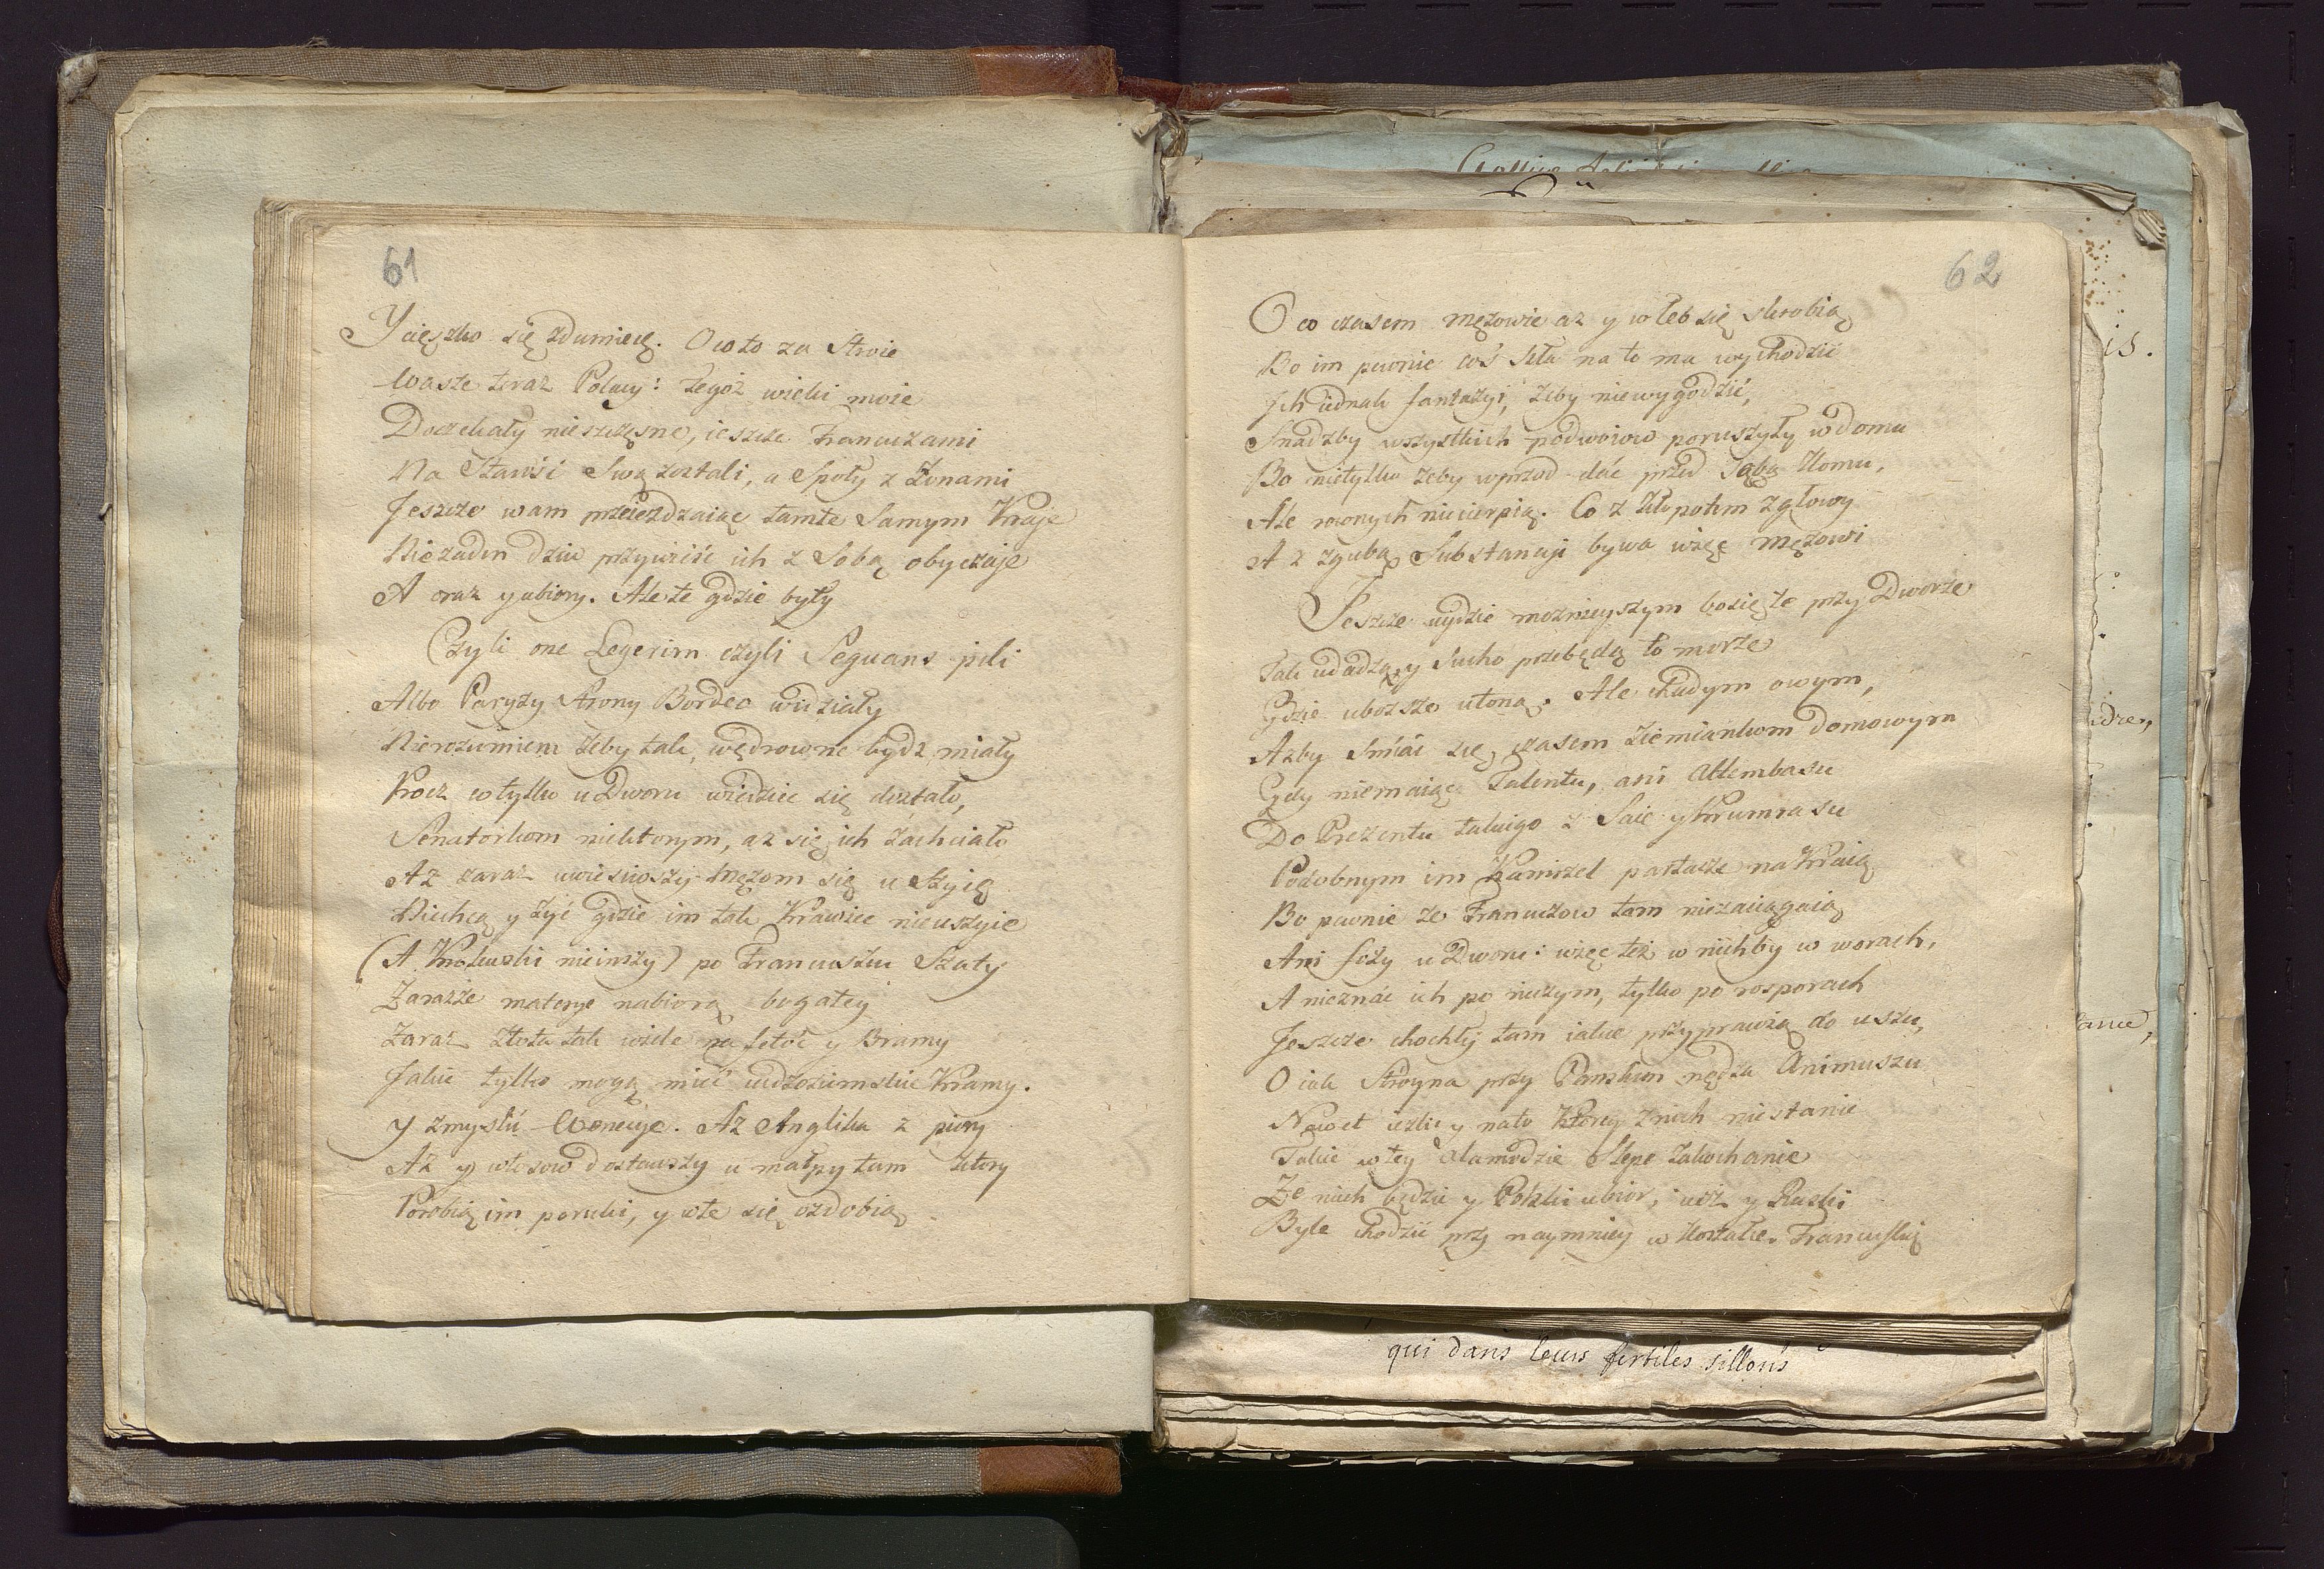 61
Y cięszko się zdumieię. Owoto za stroie
Wasze teraz Polacy: tegoż wieki moie
Doczekały nieszczęsne, ieszcze Francuzami
Na Starość Swą zostali, a Społy z Żonami
Jeszcze wam przeieżdzaiąc tamte Samym Kraje
Nieżaden dziw przynieść ich z Sobą obyczaje
A oraz y ubiory. Ale te gdzie były
Czyli one Legerim czyli Seguans pili
Albo Paryzy Strony Bordeo widziały
Nierozumiem żeby tak, wędrowne bydz miały
Procz co tylko u Dworu widziec się dostało,
Senatorkom niektorym, az się ich zachciało
Az zaraz uwiesiwszy Mężom się u Szyię
Niechcą y żyć gdzie im tak Krawiec nieuszyie
(A Krolewski nieinszy) po Francusku Szaty
Zarazże materye nabiorą bogatey
Zaraz złota tak wiele na fotoć y Bramy
Jakie tylko mogą mieć cudzoziemskie Kramy.
Y zmyslić Wenecye. Az Anglika z piory
Az y włosow dostawszy u małpy tam ktory
Porobią im peruki, y wte się ozdobią
62
O co czasem mężowie az y w łeb się skrobią
Bo im pewnie coś Siła na to ma wychodzić
Ich iednak fantazyi, żeby niewygodzić,
Snadzby wszystkich podwoiow poruszyły w domu
Bo nietylko żeby wprzod dać przed Sobą komu,
Ale rownych niecierpią. Co z kłopotem z głowy
A z zgubą Substancyi bywa więc mężowi
Jeszcze uydzie moznieyszym bosięte przy Dworze
Tak udadzą, y Sucho przebędą to morze
Gdzie ubozsze utoną. Ale chudym owym,
Azby śmiać się, czasem ziemiankom domowym
Gdy niemaiąc Talentu, ani Altembasu
Do Prezentu takiego z Saie y Krumrasu
Podobnym im Kamizel partacze na Kraią
Bo pewnie ze Francuzow tam niezaciągaią
Ani szyły u Dworu: więc też w nichby w worach,
A nieznać ich po niczym, tylko po rosporach
Jeszcze chochły tam iakie przyprawią do uszu,
O iak Stroyna przy Pańskim nędza Animuszu
Nawet iezli y nato Ktorey z nich niestanie
Takie w tey alamodzie Slepe zakochanie
Ze niech będzie y Polski ubior, iuż y Ruski
Byle chodzić przynaymniey w kształcie Francuskiey
qui dans leurs fertiles sillons